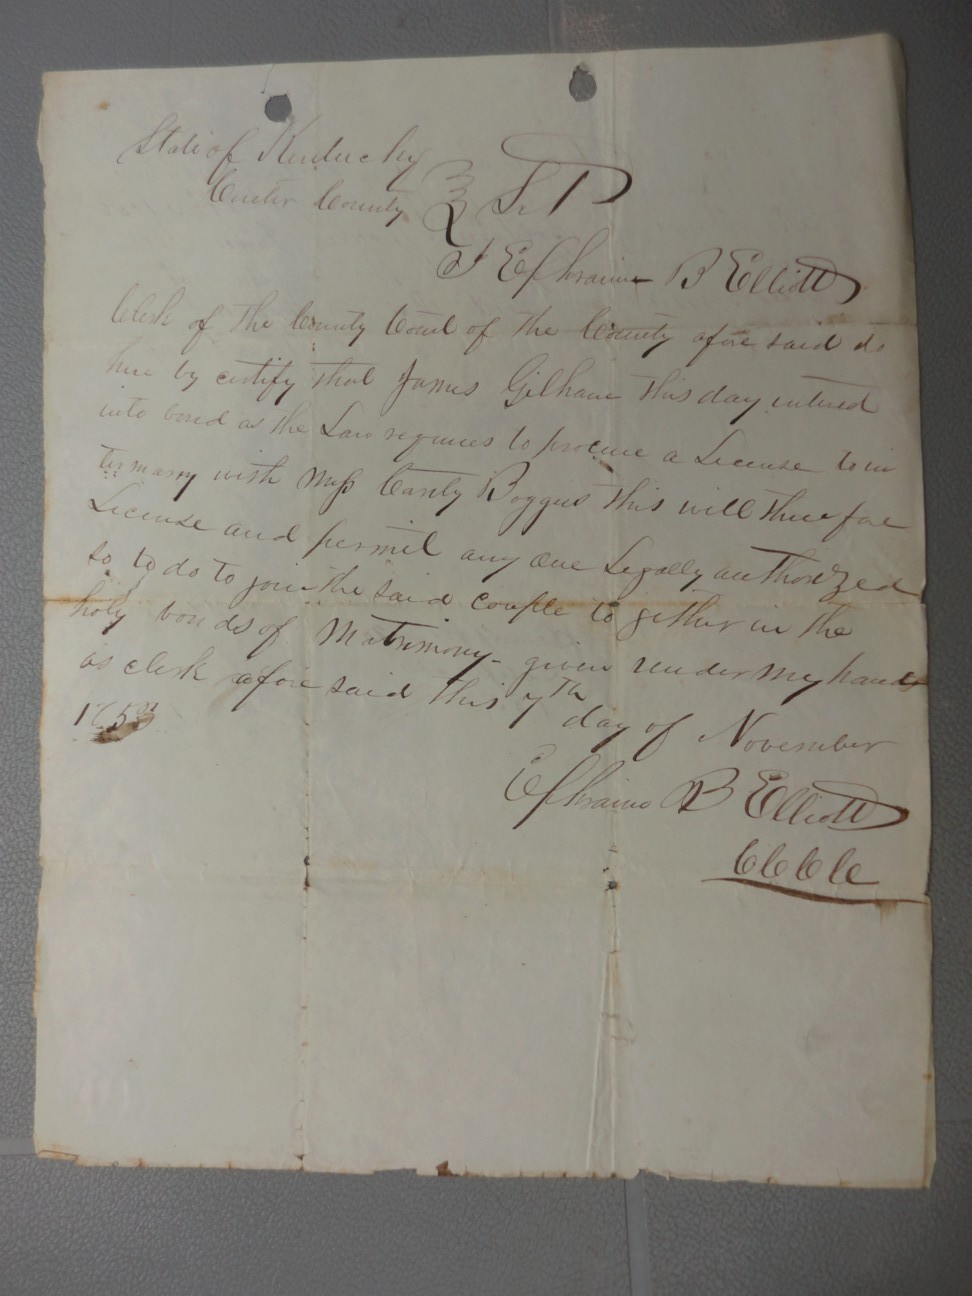 State of Kentucky
Carter County } Sct
I Ephraim B Elliott
Clerk of the County Court of the County afore said do
here by certify that James Gilham this day entered
into bond as the Law requires to procure a License to in
termarry with Miss Boggus this will therefore
License and permit any one Legally authorized
so to do to join the said couple to gether in the
holy bonds of Matrimony given under My hand
as clerk afore said this 7th day of November
Ephraim B Elliott
C C C C